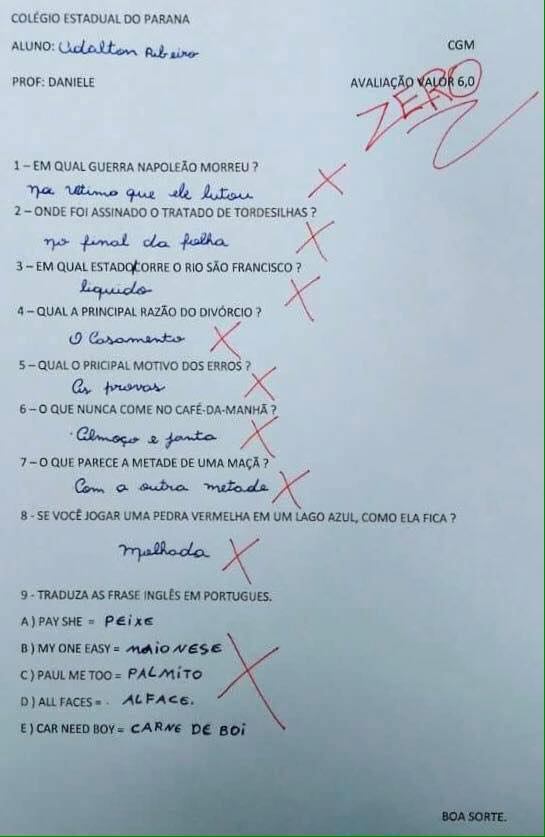 COLÉGIO ESTADUAL DO PARANA
ALUNO: Udalton Ribeiro
CGM
PROF: DANIELE
AVALIAÇÃO VALOR 6,0
ZERO
1 – EM QUAL GUERRA NAPOLEÃO MORREU ?
na ultima que ele lutou
2 – ONDE FOI ASSINADO O TRATADO DE TORDESILHAS ?
no final da folha
3 – EM QUAL ESTADO CORRE O RIO SÃO FRANCISCO ?
liquido
4 – QUAL A PRINCIPAL RAZÃO DO DIVÓRCIO ?
O Casamento
5 – QUAL O PRICIPAL MOTIVO DOS ERROS ?
As provas
6 – O QUE NUNCA COME NO CAFÉ-DA-MANHÃ ?
Almoço e janta
7 – O QUE PARECE A METADE DE UMA MAÇÃ ?
Com a outra metade
8 - SE VOCÊ JOGAR UMA PEDRA VERMELHA EM UM LAGO AZUL, COMO ELA FICA ?
Molhada
9 - TRADUZA AS FRASE INGLÊS EM PORTUGUES.
A ) PAY SHE = PEIXE
B ) MY ONE EASY = MAIONESE
C ) PAUL ME TOO = PALMITO
D ) ALL FACES = . ALFACE.
E ) CAR NEED BOY = CARNE DE BOI
BOA SORTE.